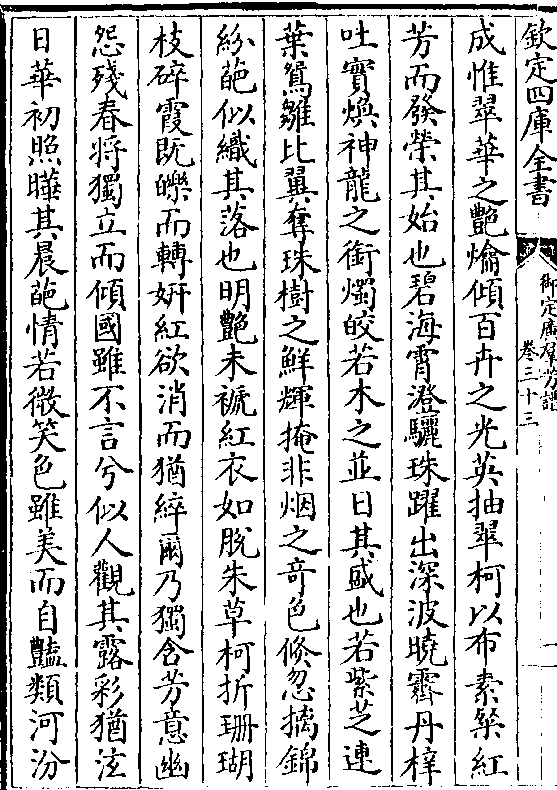 欽定四庫全書
御定廣群芳譜
卷三十三
成惟翠華之艷爚傾百卉之光英抽翠柯以布素粲紅
芳而發榮其始也碧海霄澄驪珠躍出深波曉霽丹梓
吐實煥神龍之銜燭皎若木之並日其盛也若紫芝連
葉鴛雛比翼奪珠樹之鮮輝掩非烟之竒色倐忽摛錦
紛葩似織其落也明艷未褫紅衣如脫朱草柯折珊瑚
枝碎霞既皪而轉妍紅欲消而猶綷爾乃獨含芳意幽
怨殘春將獨立而傾國雖不言兮似人觀其露彩猶泫
日華初照曄其晨葩情若微笑色雖美而自豔類河汾